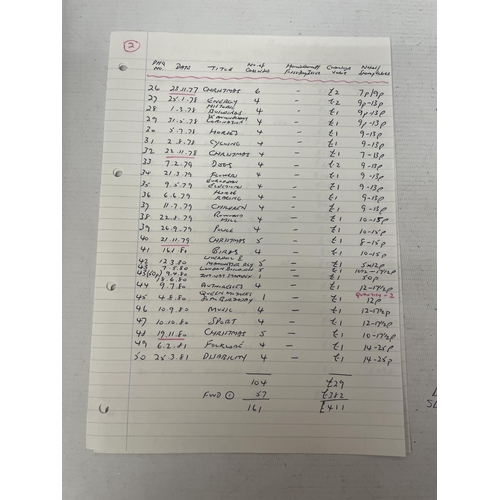 2
PHQ NO. DATE TITLE No. of Cards Handstamp Catalogue Value
26 23.11.77 CHRISTMAS 6 - £2 7p/9p
27 25.1.78 ENERGY 4 - £2 9p-13p
28 1.3.78 HISTORIC BUILDINGS 4 - £1 9p-13p
29 31.5.78 CORONATION 4 - £1 9p-13p
30 5.7.78 HORSES 4 - £1 9-13p
31 2.8.78 CYCLING 4 - £1 9-13p
32 22.11.78 CHRISTMAS 4 - £1 7-13p
33 7.2.79 DOGS 4 - £2 9-13p
34 21.3.79 FLOWERS 4 - £1 9-13p
35 9.5.79 EUROPEAN ELECTIONS 4 - £1 9-13p
36 6.6.79 HORSE RACING 4 - £1 9-13p
37 11.7.79 CHILDREN 4 - £1 9-13p
38 22.8.79 ROWLAND HILL 4 - £1 10-15p
39 26.9.79 POLICE 4 - £1 10-15p
40 21.11.79 CHRISTMAS 5 - £1 8-15p
41 16.1.80 BIRDS 4 - £1 10-15p
42 12.3.80 LIVERPOOL & MANCHESTER RLY 5 - £1
43 7.5.80 LONDON BUILDINGS 5 - £1 10½-17½p
9.4.80 1 - £1 50p
44 9.7.80 AUTHORESSES 4 - £1 12-17½p
45 4.8.80 QUEEN MOTHERS 80TH BIRTHDAY 1 - £1 12p
46 10.9.80 MUSIC 4 - £1 12-17½p
47 10.10.80 SPORT 4 - £1 12-17½p
48 19.11.80 CHRISTMAS 5 - £1 10-17½p
49 6.2.81 FOLKLORE 4 - £1 14-25p
50 25.3.81 DISABILITY 4 - £1 14-25p
104 £29
FWD 1 57 £382
161 £411